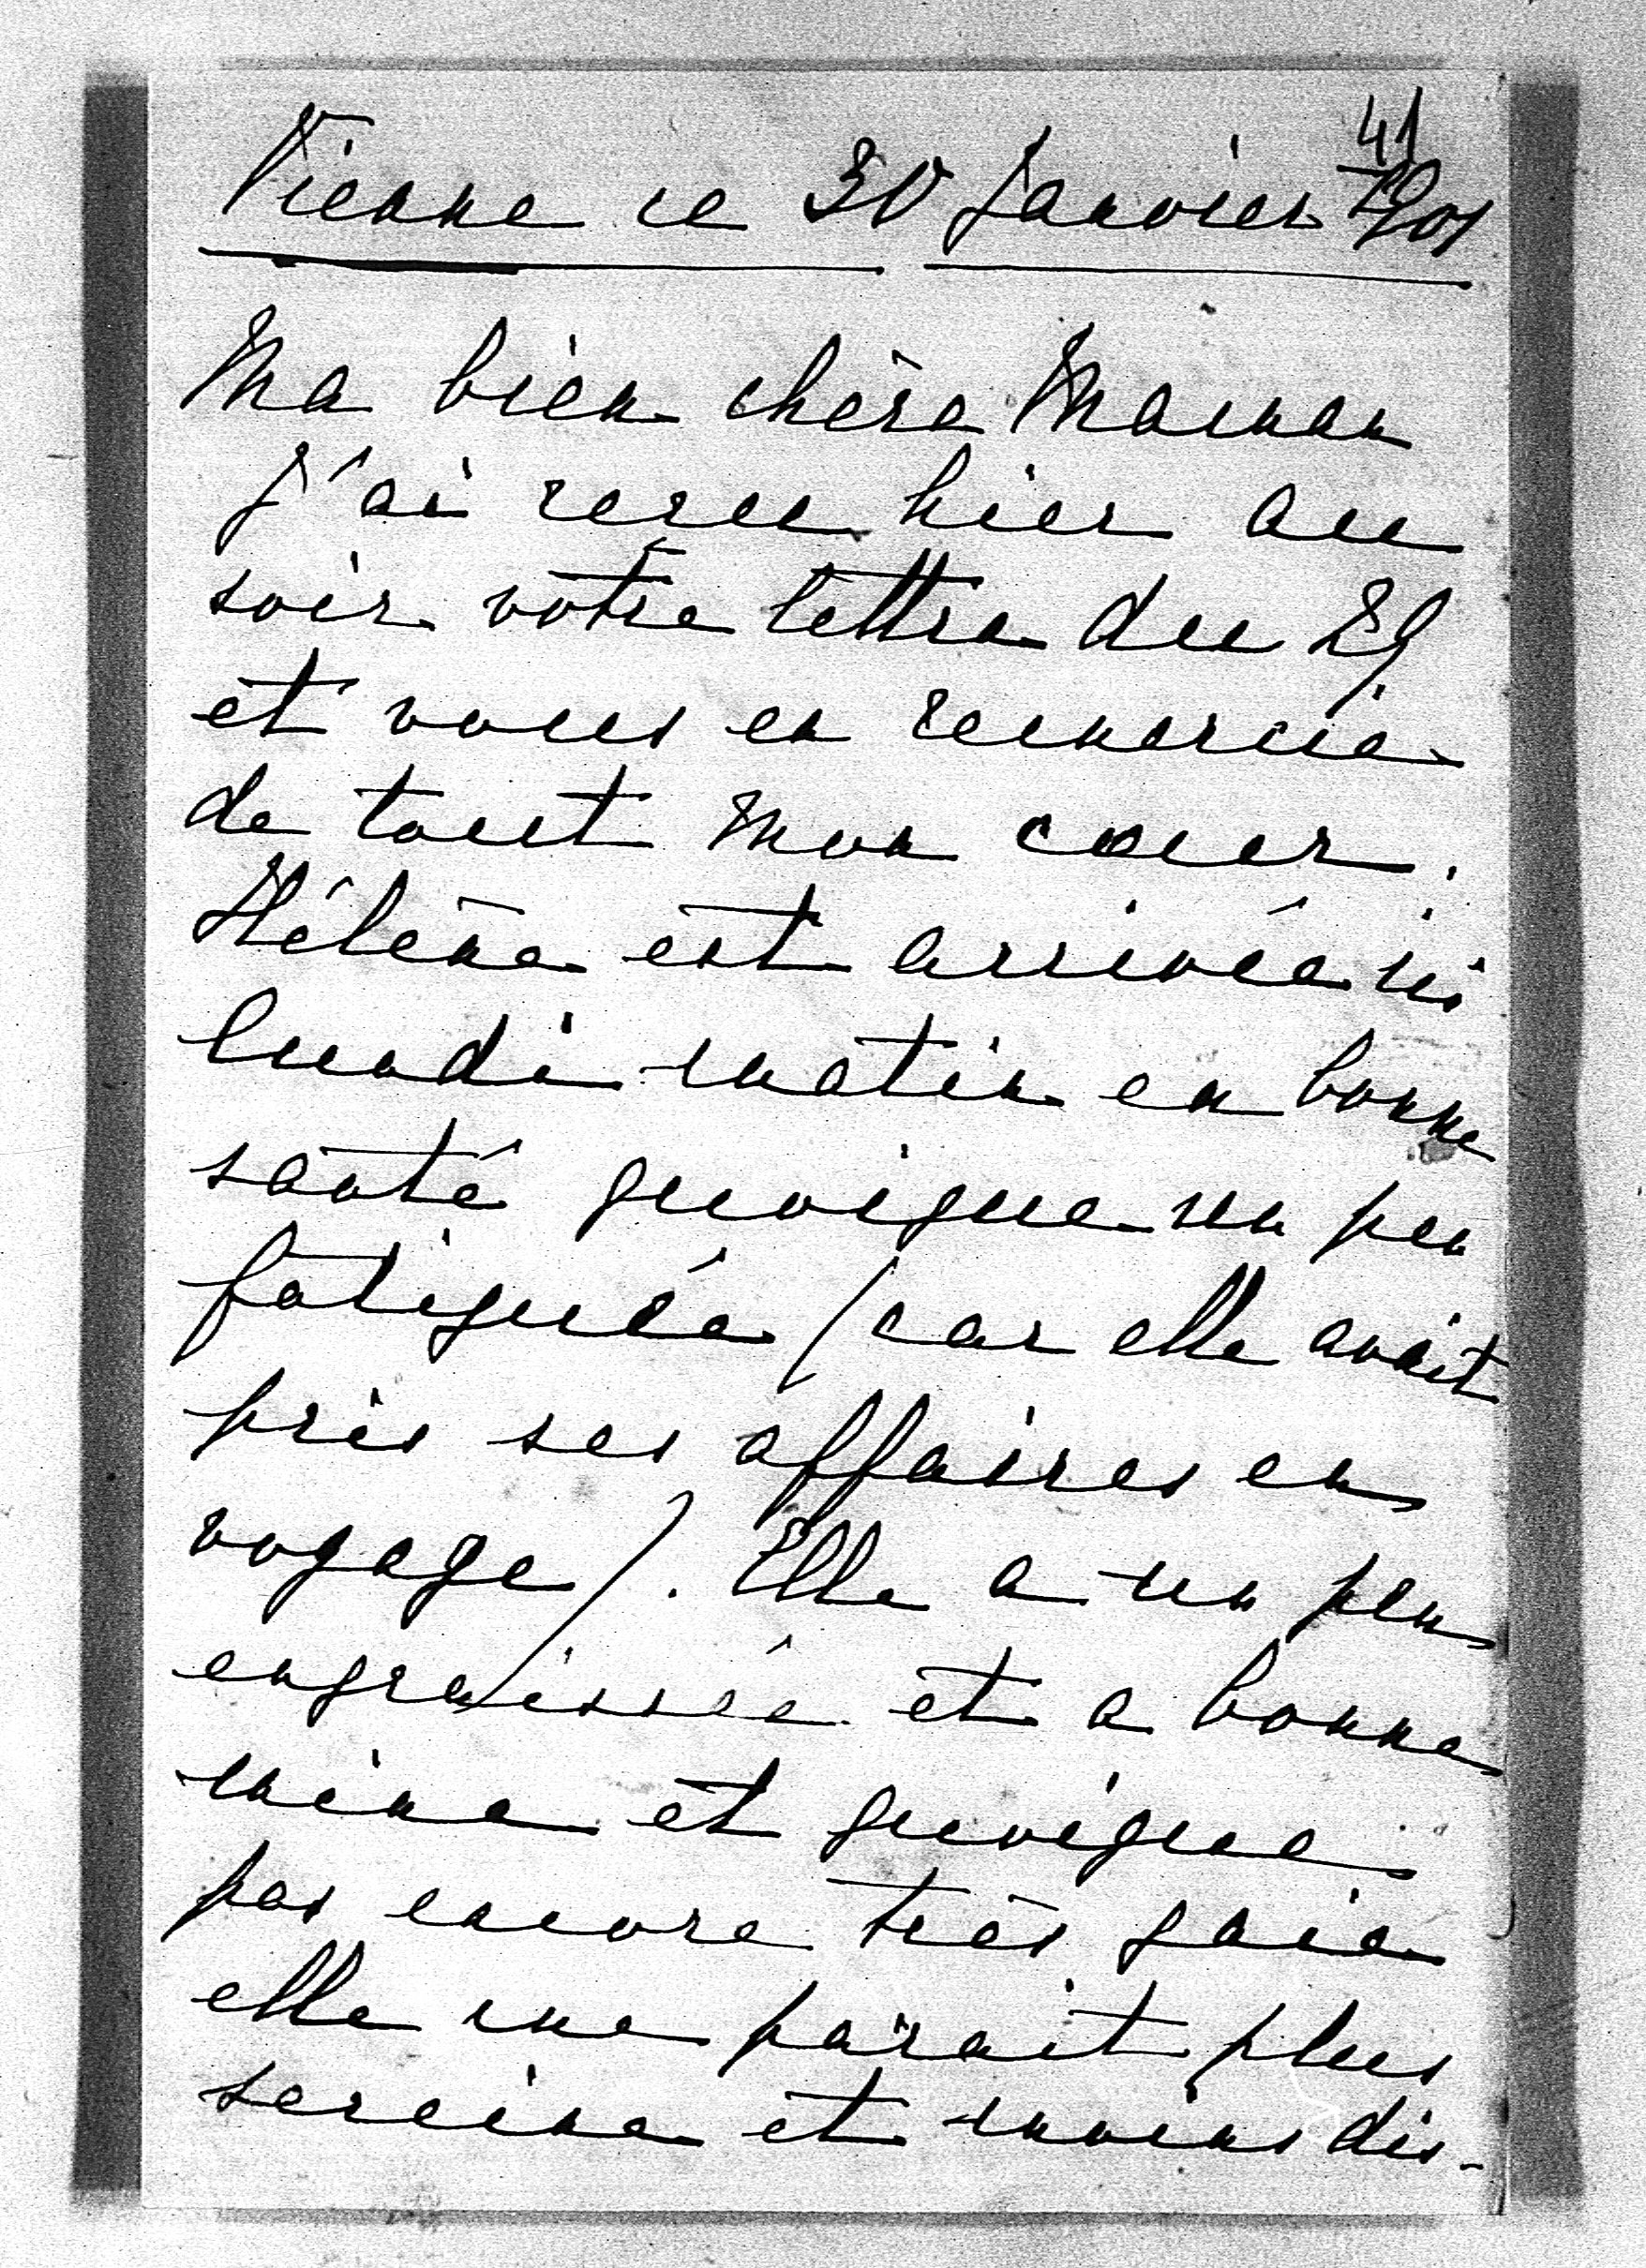 41
Vienne ce 30 Janvier 1901
Ma bien chère Maman
J'ai reçu hier au
soir votre lettre du 29
et vous en remercie
de tout mon cœur.
Hélène est arrivée ici
lundi matin en bonne
santé quoique un peu
fatiguée (car elle avait
pris ses affaires en
voyage). Elle a un peu
engraissée et a bonne
mine et quoique
pas encore très gaie
elle me parait plus
sereine et moins dis-